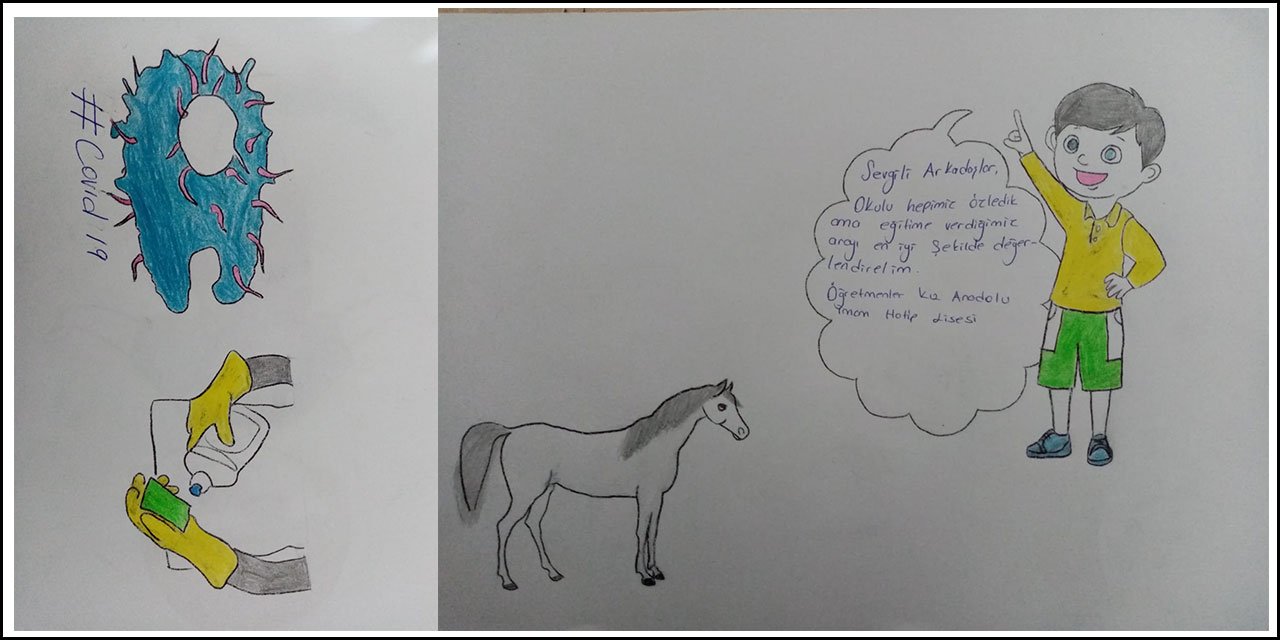 #Covid 19
Sevgili Arkadaşlar,
Okulu hepimiz özledik
ama eğitime verdiğimiz
arayı en iyi Şekilde değer-
lendirelim.
Öğretmenler Kız Anadolu
imam Hatip Lisesi